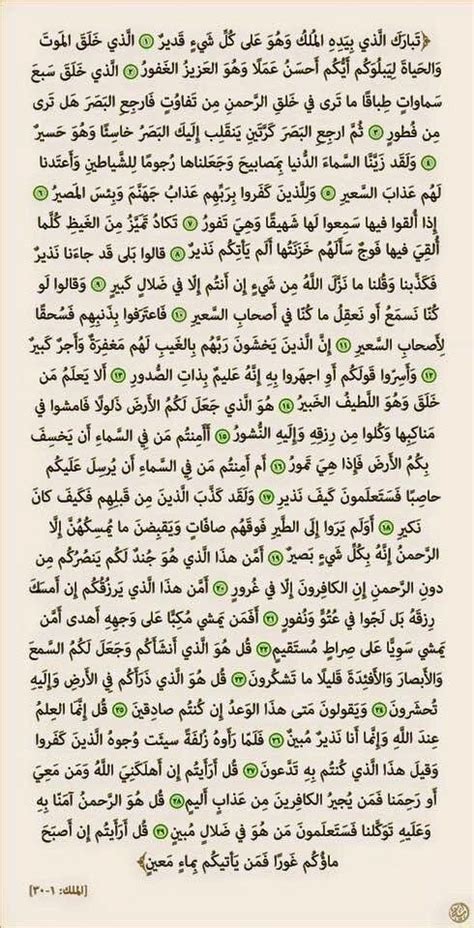 ﴿تَبارَكَ الَّذي بِيَدِهِ المُلكُ وَهُوَ عَلى كُلِّ شَيءٍ قَديرٌ ١ الَّذي خَلَقَ المَوتَ
وَالحَياةَ لِيَبلُوَكُم أَيُّكُم أَحسَنُ عَمَلًا وَهُوَ العَزيزُ الغَفورُ ٢ الَّذي خَلَقَ سَبعَ
سَماواتٍ طِباقًا ما تَرى في خَلقِ الرَّحمنِ مِن تَفاوُتٍ فَارجِعِ البَصَرَ هَل تَرى
مِن فُطورٍ ٣ ثُمَّ ارجِعِ البَصَرَ كَرَّتَينِ يَنقَلِب إِلَيكَ البَصَرُ خاسِئًا وَهُوَ حَسيرٌ
٤ وَلَقَد زَيَّنَّا السَّماءَ الدُّنيا بِمَصابيحَ وَجَعَلناها رُجومًا لِلشَّياطينِ وَأَعتَدنا
لَهُم عَذابَ السَّعيرِ ٥ وَلِلَّذينَ كَفَروا بِرَبِّهِم عَذابُ جَهَنَّمَ وَبِئسَ المَصيرُ ٦
إِذا أُلقوا فيها سَمِعوا لَها شَهيقًا وَهِيَ تَفورُ ٧ تَكادُ تَمَيَّزُ مِنَ الغَيظِ كُلَّما
أُلقِيَ فيها فَوجٌ سَأَلَهُم خَزَنَتُها أَلَم يَأتِكُم نَذيرٌ ٨ قالوا بَلى قَد جاءَنا نَذيرٌ
فَكَذَّبنا وَقُلنا ما نَزَّلَ اللَّهُ مِن شَيءٍ إِن أَنتُم إِلّا في ضَلالٍ كَبيرٍ ٩ وَقالوا لَو
كُنّا نَسمَعُ أَو نَعقِلُ ما كُنّا في أَصحابِ السَّعيرِ ١٠ فَاعتَرَفوا بِذَنبِهِم فَسُحقًا
لِأَصحابِ السَّعيرِ ١١ إِنَّ الَّذينَ يَخشَونَ رَبَّهُم بِالغَيبِ لَهُم مَغفِرَةٌ وَأَجرٌ كَبيرٌ
١٢ وَأَسِرّوا قَولَكُم أَوِ اجهَروا بِهِ إِنَّهُ عَليمٌ بِذاتِ الصُّدورِ ١٣ أَلا يَعلَمُ مَن
خَلَقَ وَهُوَ اللَّطيفُ الخَبيرُ ١٤ هُوَ الَّذي جَعَلَ لَكُمُ الأَرضَ ذَلولًا فَامشوا في
مَناكِبِها وَكُلوا مِن رِزقِهِ وَإِلَيهِ النُّشورُ ١٥ أَأَمِنتُم مَن فِي السَّماءِ أَن يَخسِفَ
بِكُمُ الأَرضَ فَإِذا هِيَ تَمورُ ١٦ أَم أَمِنتُم مَن فِي السَّماءِ أَن يُرسِلَ عَلَيكُم
حاصِبًا فَسَتَعلَمونَ كَيفَ نَذيرِ ١٧ وَلَقَد كَذَّبَ الَّذينَ مِن قَبلِهِم فَكَيفَ كانَ
نَكيرِ ١٨ أَوَلَم يَرَوا إِلَى الطَّيرِ فَوقَهُم صافّاتٍ وَيَقبِضنَ ما يُمسِكُهُنَّ إِلَّا
الرَّحمنُ إِنَّهُ بِكُلِّ شَيءٍ بَصيرٌ ١٩ أَمَّن هذَا الَّذي هُوَ جُندٌ لَكُم يَنصُرُكُم مِن
دونِ الرَّحمنِ إِنِ الكافِرونَ إِلّا في غُرورٍ ٢٠ أَمَّن هذَا الَّذي يَرزُقُكُم إِن أَمسَكَ
رِزقَهُ بَل لَجّوا في عُتُوٍّ وَنُفورٍ ٢١ أَفَمَن يَمشي مُكِبًّا عَلى وَجهِهِ أَهدى أَمَّن
يَمشي سَوِيًّا عَلى صِراطٍ مُستَقيمٍ ٢٢ قُل هُوَ الَّذي أَنشَأَكُم وَجَعَلَ لَكُمُ السَّمعَ
وَالأَبصارَ وَالأَفئِدَةَ قَليلًا ما تَشكُرونَ ٢٣ قُل هُوَ الَّذي ذَرَأَكُم فِي الأَرضِ وَإِلَيهِ
تُحشَرونَ ٢٤ وَيَقولونَ مَتى هذَا الوَعدُ إِن كُنتُم صادِقينَ ٢٥ قُل إِنَّمَا العِلمُ
عِندَ اللَّهِ وَإِنَّما أَنا نَذيرٌ مُبينٌ ٢٦ فَلَمّا رَأَوهُ زُلفَةً سيئَت وُجوهُ الَّذينَ كَفَروا
وَقيلَ هذَا الَّذي كُنتُم بِهِ تَدَّعونَ ٢٧ قُل أَرَأَيتُم إِن أَهلَكَنِيَ اللَّهُ وَمَن مَعِيَ
أَو رَحِمَنا فَمَن يُجيرُ الكافِرينَ مِن عَذابٍ أَليمٍ ٢٨ قُل هُوَ الرَّحمنُ آمَنّا بِهِ
وَعَلَيهِ تَوَكَّلنا فَسَتَعلَمونَ مَن هُوَ في ضَلالٍ مُبينٍ ٢٩ قُل أَرَأَيتُم إِن أَصبَحَ
ماؤُكُم غَورًا فَمَن يَأتيكُم بِماءٍ مَعينٍ﴾
[الملك: ١-٣٠]